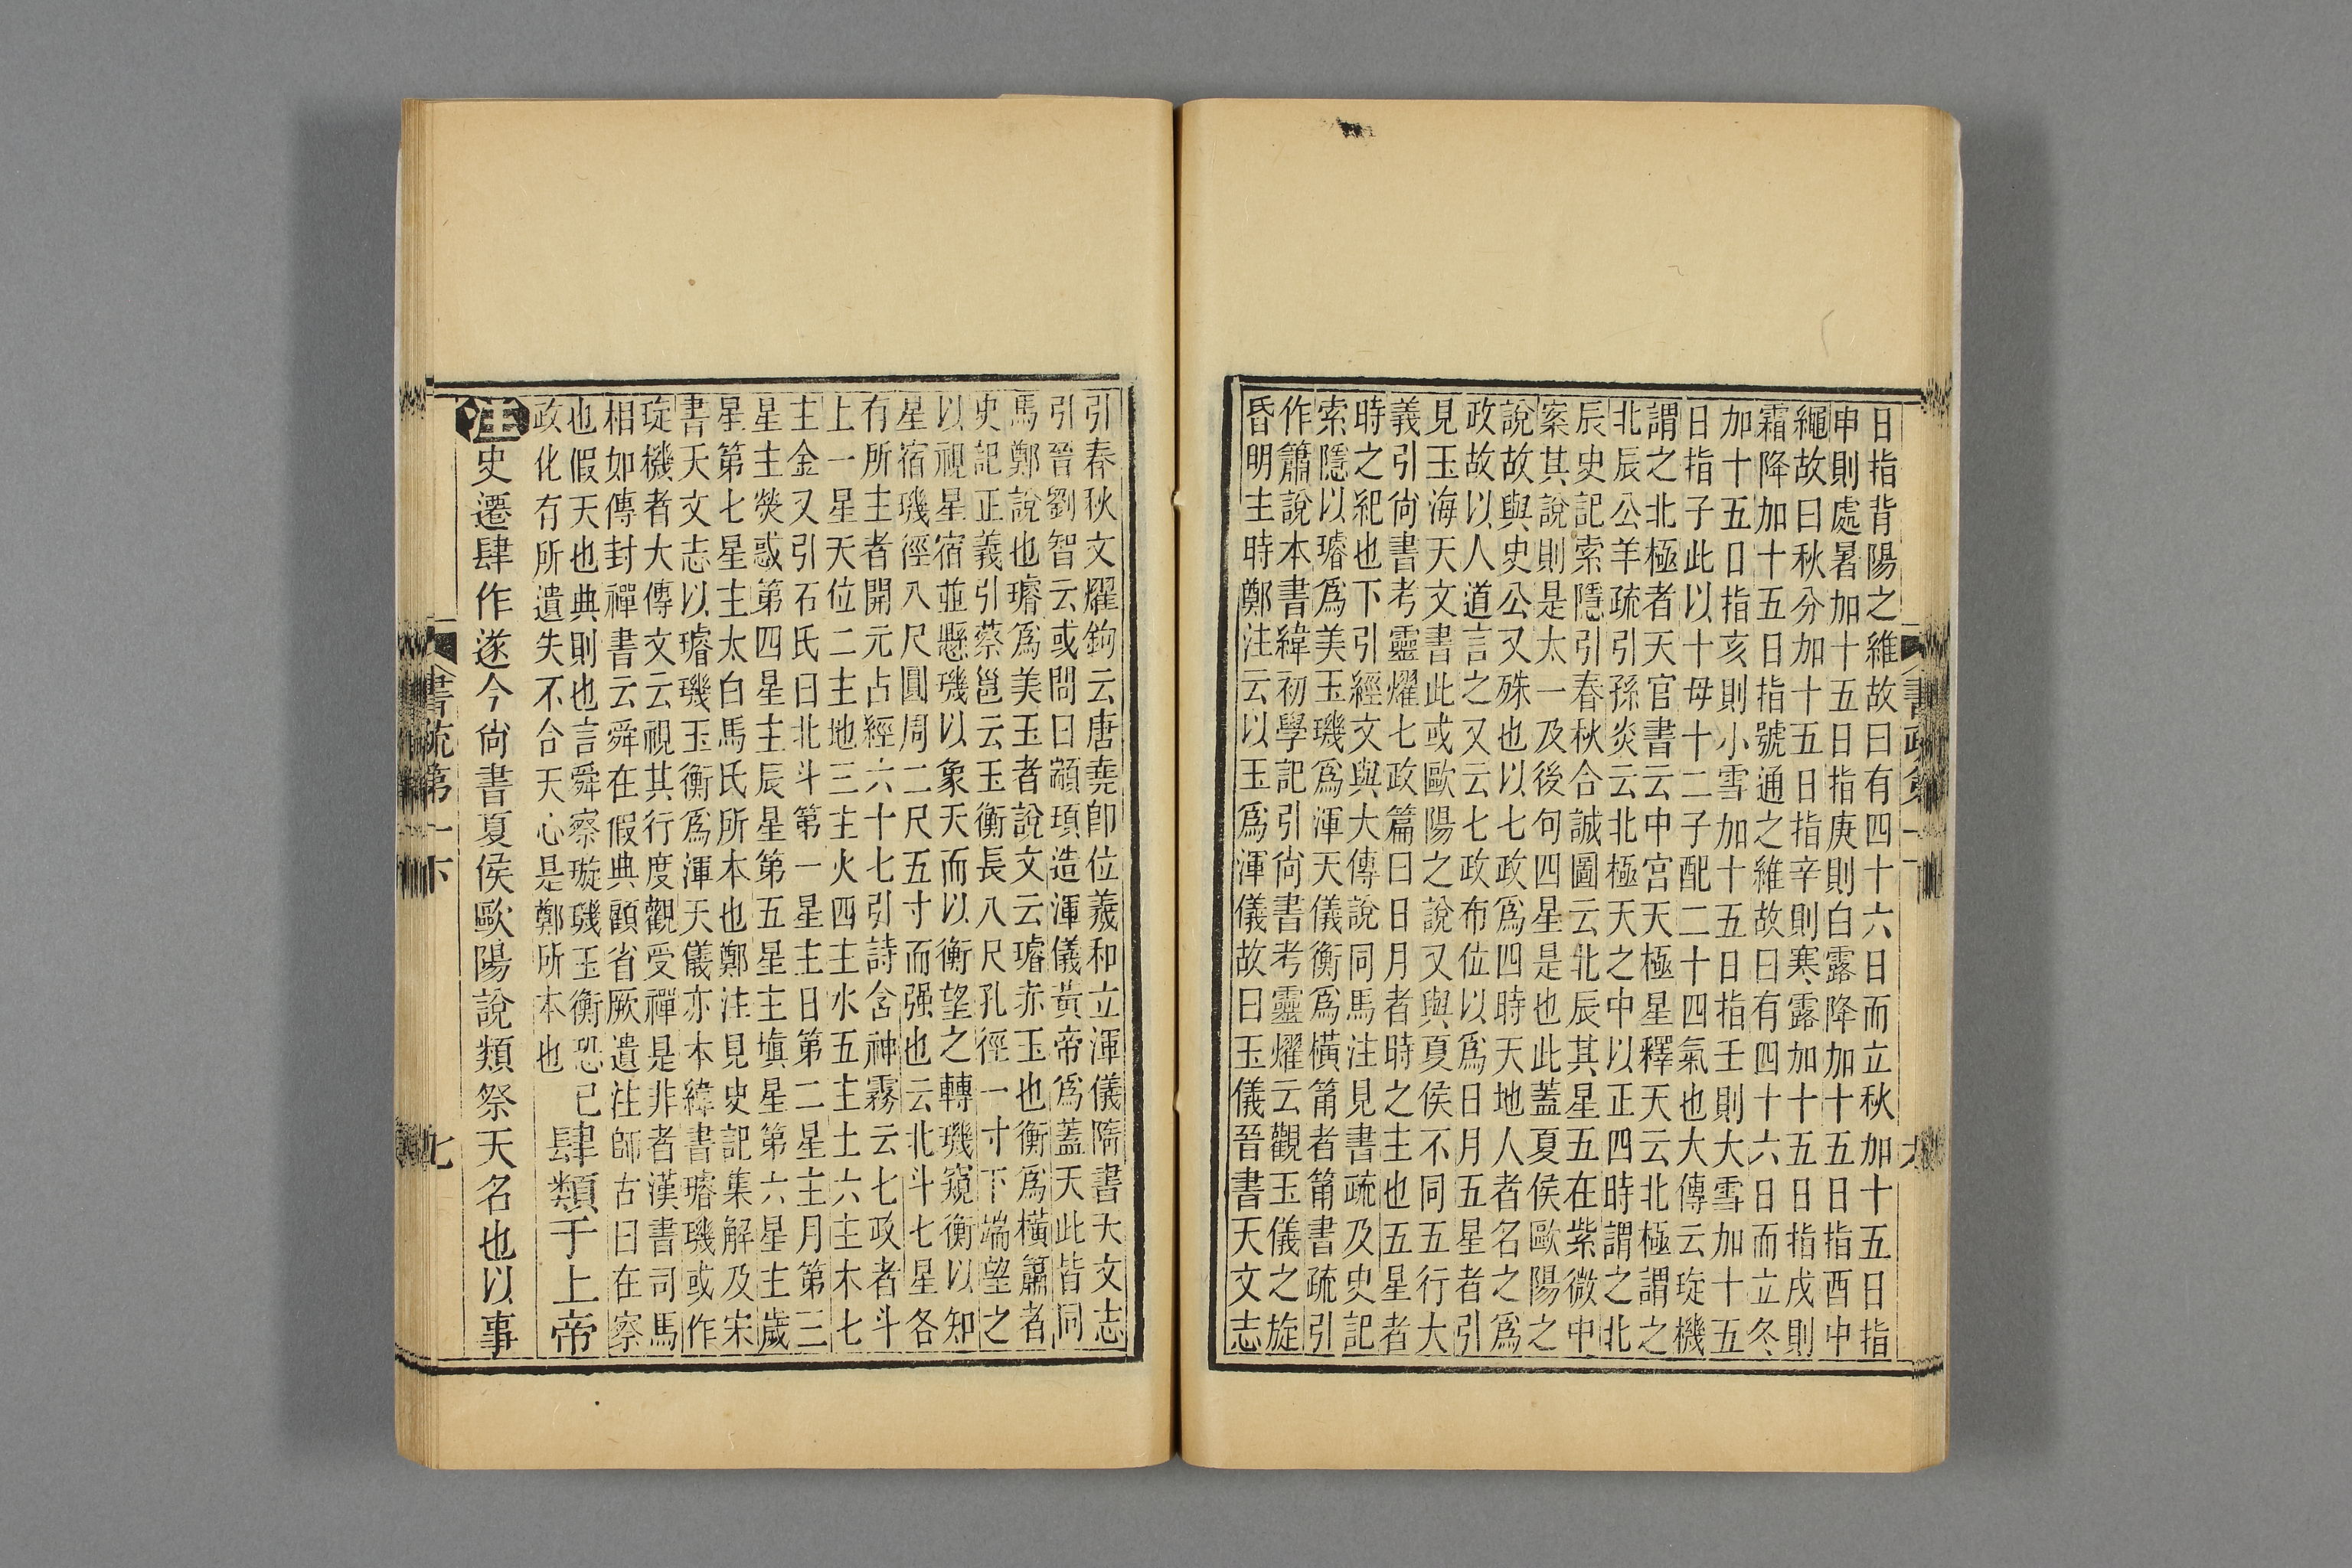 日指背陽之維故曰有四十六日而立秋加十五日指
申則處暑加十五日指庚則白露降加十五日指酉中
繩故曰秋分加十五日指辛則寒露加十五日指戌則
霜降加十五日指號通之維故曰有四十六日而立冬
加十五日指亥則小雪加十五日指壬則大雪加十五
日指子此以十母十二子配二十四氣也大傳云琁機
謂之北極者天官書云中宮天極星釋天云北極謂之
北辰公羊疏引孫炎云北極天之中以正四時謂之北
辰史記索隱引春秋合誠圖云北辰其星五在紫微中
案其說則是太一及後句四星是也此蓋夏侯歐陽之
說故與史公又殊也以七政爲四時天地人者名之爲
政故以人道言之又云七政布位以爲日月五星者引
見玉海天文書此或歐陽之說又與夏侯不同五行大
義引尙書考靈燿七政篇曰日月者時之主也五星者
時之紀也下引經文與大傳說同馬注見書疏及史記
索隱以璿爲美玉璣爲渾天儀衡爲橫筩者筩書疏引
作簫說本書緯初學記引尙書考靈燿云觀玉儀之旋
昏明主時鄭注云以玉爲渾儀故曰玉儀晉書天文志
引春秋文燿鉤云唐堯卽位羲和立渾儀隋書天文志
引晉劉智云或問曰顓頊造渾儀黃帝爲蓋天此皆同
馬鄭說也璿爲美玉者說文云璿赤玉也衡爲橫簫者
史記正義引蔡邕云玉衡長八尺孔徑一寸下端望之
以視星宿並懸璣以象天而以衡望之轉璣窺衡以知
星宿璣徑八尺圓周二尺五寸而强也云北斗七星各
有所主者開元占經六十七引詩含神霧云七政者斗
上一星天位二主地三主火四主水五主土六主木七
主金又引石氏曰北斗第一星主日第二星主月第三
星主熒惑第四星主辰星第五星主塡星第六星主歲
星第七星主太白馬氏所本也鄭注見史記集解及宋
書天文志以璿璣玉衡爲渾天儀亦本緯書璿璣或作
琁機者大傳文云視其行度觀受禪是非者漢書司馬
相如傳封禪書云舜在假典顧省厥遺注師古曰在察
也假天也典則也言舜察璇璣玉衡恐已
政化有所遺失不合天心是鄭所本也
肆類于上帝
注史遷肆作遂今尙書夏侯歐陽說類祭天名也以事
書疏第一下
七